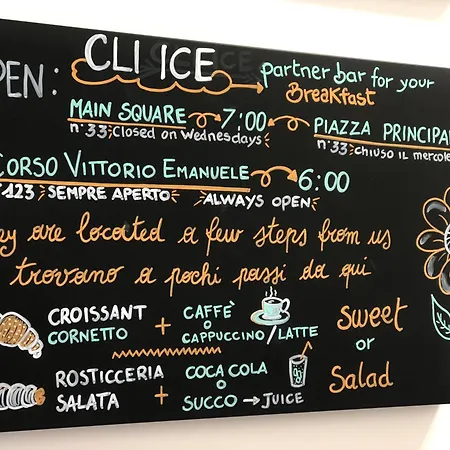 PEN:
CLI ICE
partner bar for your
Breakfast
MAIN SQUARE 7:00 PIAZZA PRINCIPA
n°33 Closed on Wednesdays n°33 CHIUSO IL MERCOLE
CORSO VITTORIO EMANUELE 6:00
n°123 SEMPRE APERTO ALWAYS OPEN
ey are located a few steps from us
trovano a pochi passi da qui
CROISSANT + CAFFÈ Sweet
CORNETTO O
CAPPUCCINO/LATTE or
ROSTICCERIA COCA COLA Salad
SALATA + O
SUCCO → JUICE